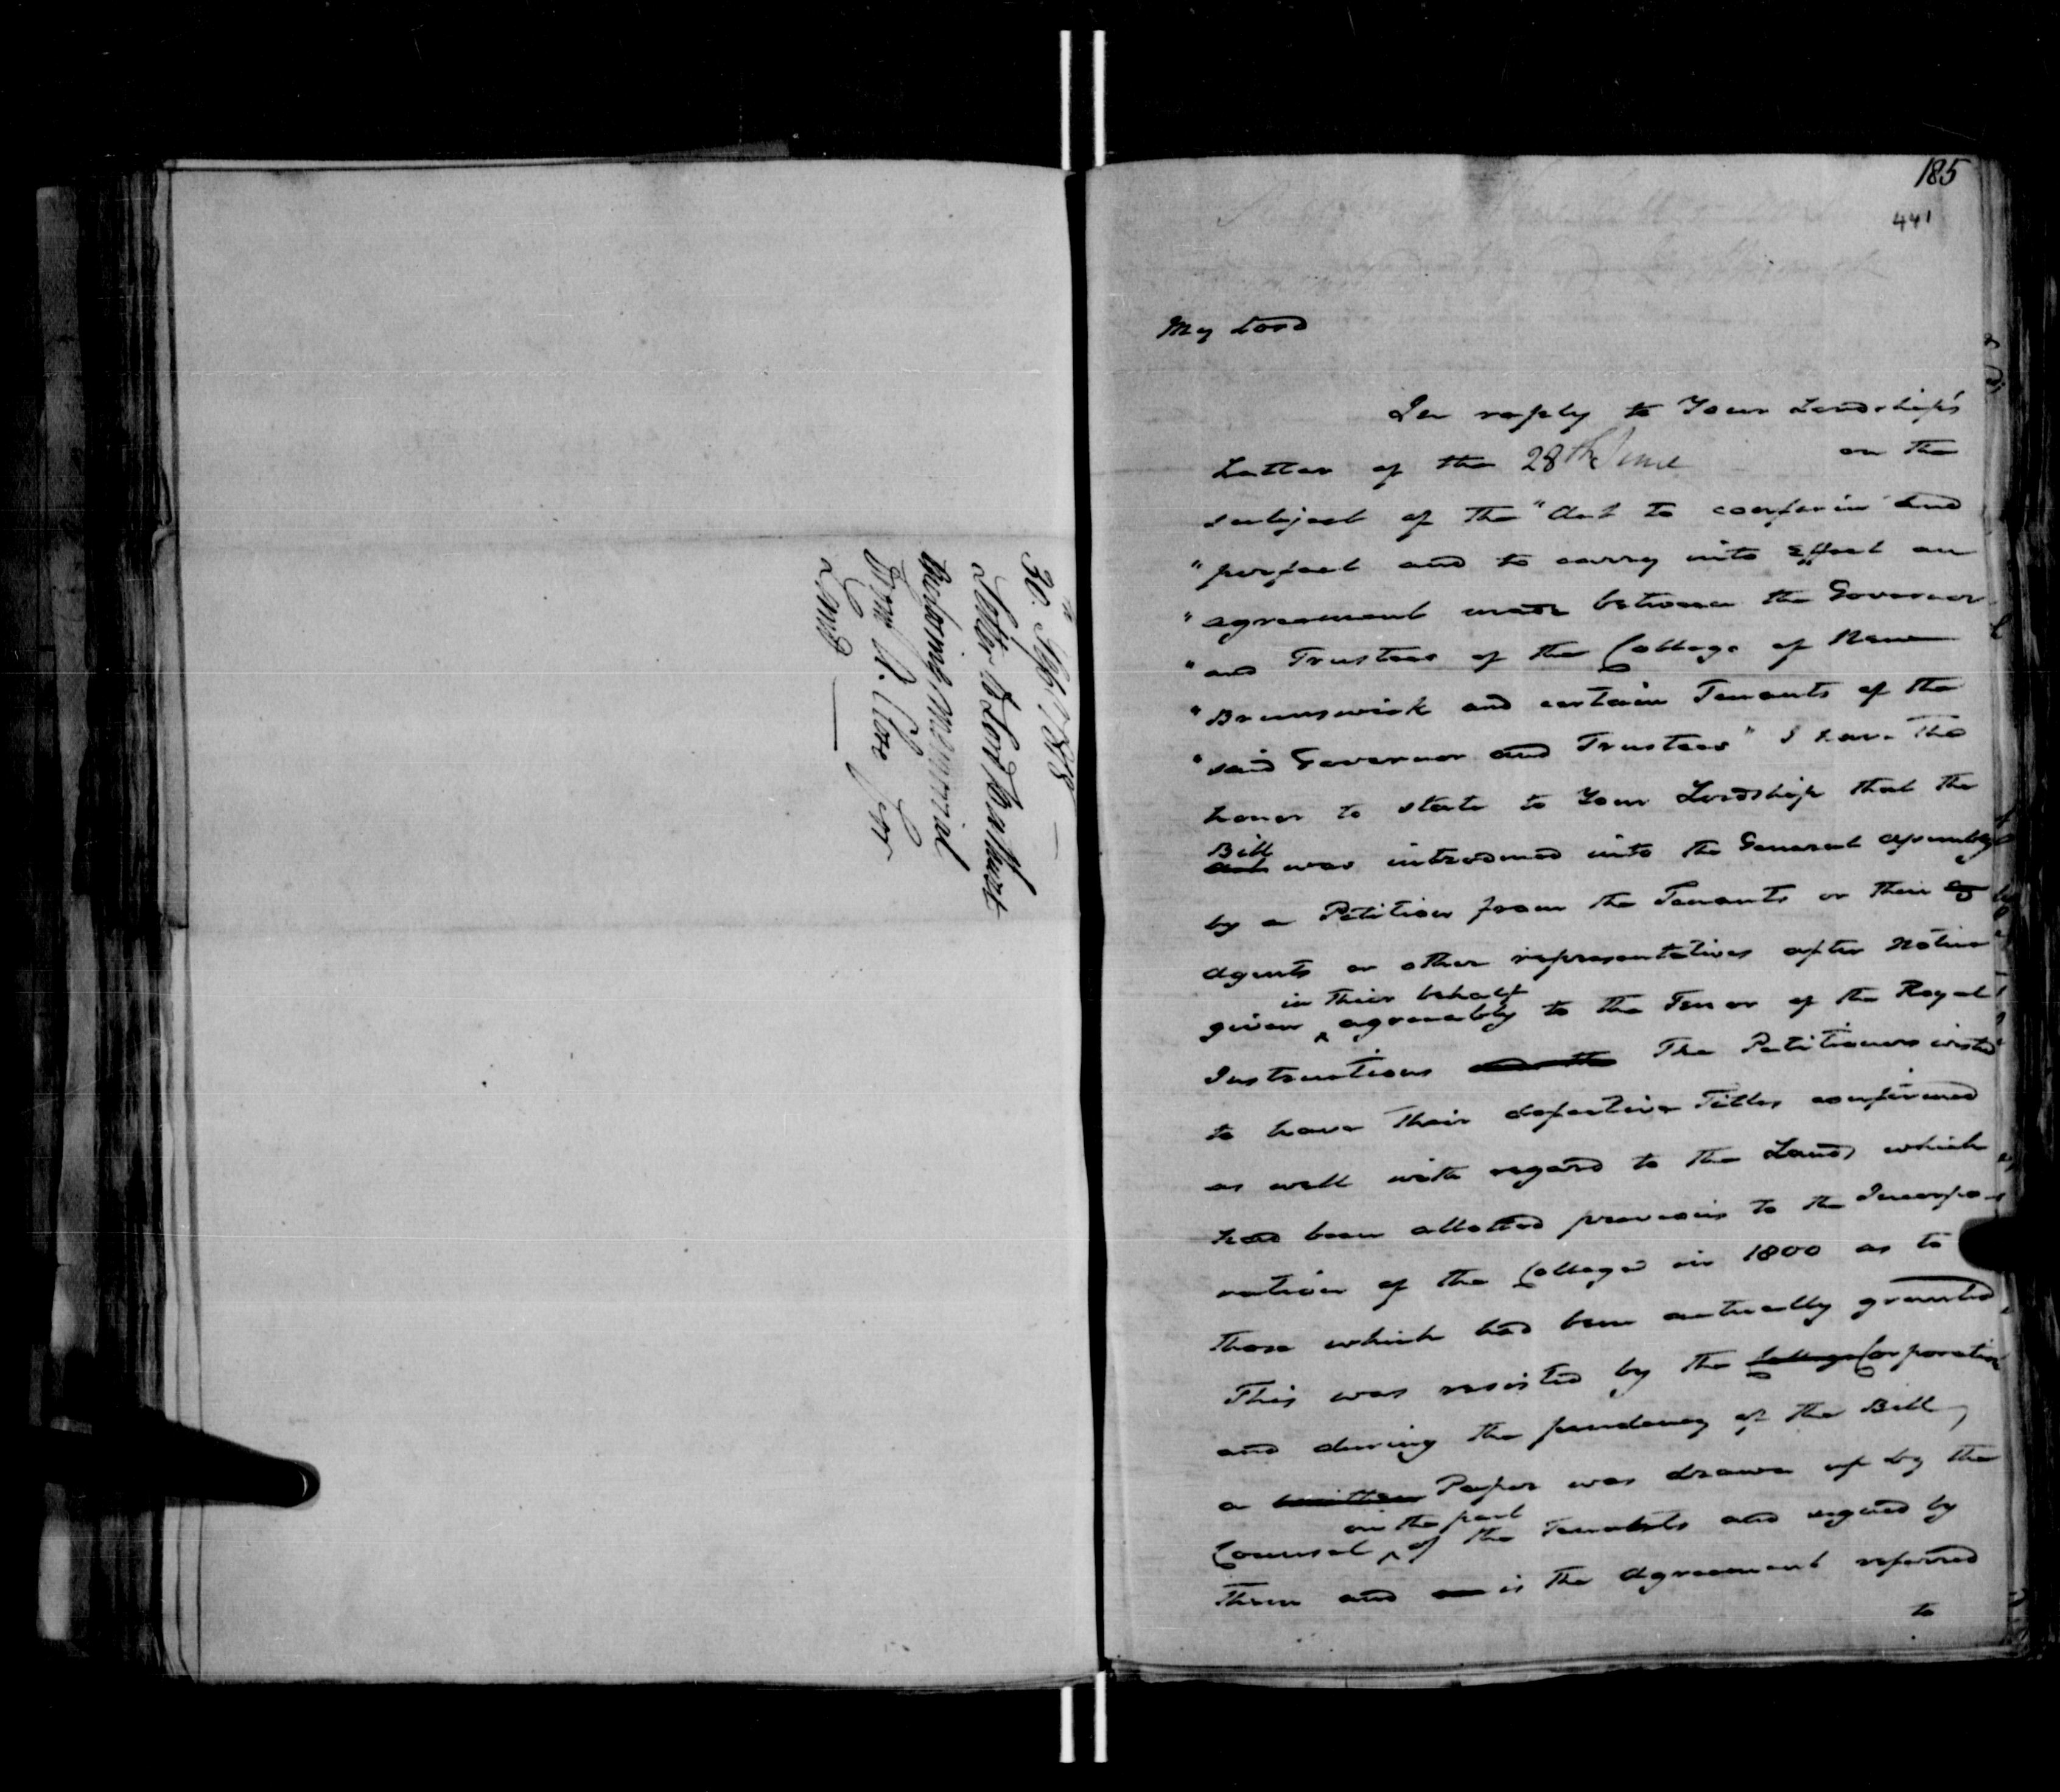 30th Septr 1818
Letter to Lord Bathurst
enclosing Memorial
from
Land
185
441
My Lord
In reply to Your Lordship's
Letter of the 28th June on the
subject of the "Act to confirm and
"perfect and to carry into Effect an
"agreement made between the Governor
"and Trustees of the College of New
"Brunswick and certain Tenants of the
"said Governor and Trustees" I have the
honor to state to Your Lordship that the
Bill
Act was introduced into the General Assembly
by a Petition from the Tenants or their
Agents or other representatives after Notice
in their behalf
given ^ agreeably to the Tenor of the Royal
Instructions and the The Petitioners wished
to have their defective Titles confirmed
as well with regard to the Lands which
had been allotted previous to the Incorpo-
ration of the College in 1800 as to
those which had been actually granted
This was resisted by the College Corporation
and during the pendency of the Bill,
a written Paper was drawn up by the
on the part
Counsel ^ of the Tenants and signed by
them and is the Agreement referred
to